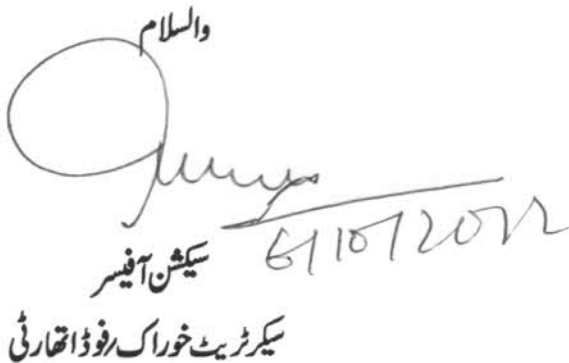 والسلام
6/10/2022
سیکشن آفیسر
سیکرٹریٹ خوراک رفوڈ اتھارٹی